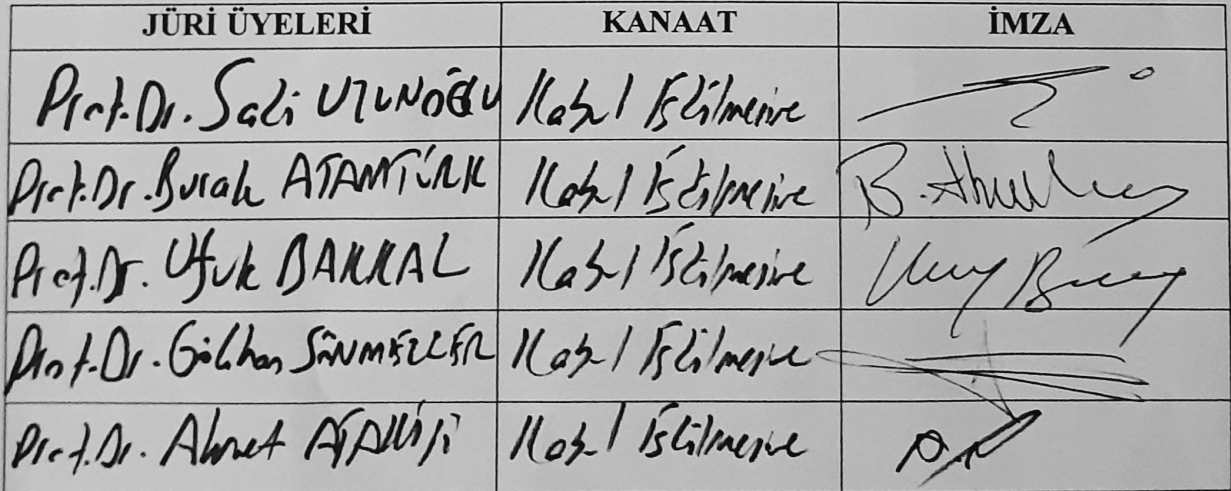 JÜRİ ÜYELERİ KANAAT İMZA
Prof.Dr. Sadi UZUNOĞLU Kabul Edilmesine
Prof.Dr. Burak ATAMTÜRK Kabul Edilmesine
Prof.Dr. Ufuk BAKKAL Kabul Edilmesine
Prof.Dr. Gökhan SÖNMEZLER Kabul Edilmesine
Prof.Dr. Ahmet Kabul Edilmesine